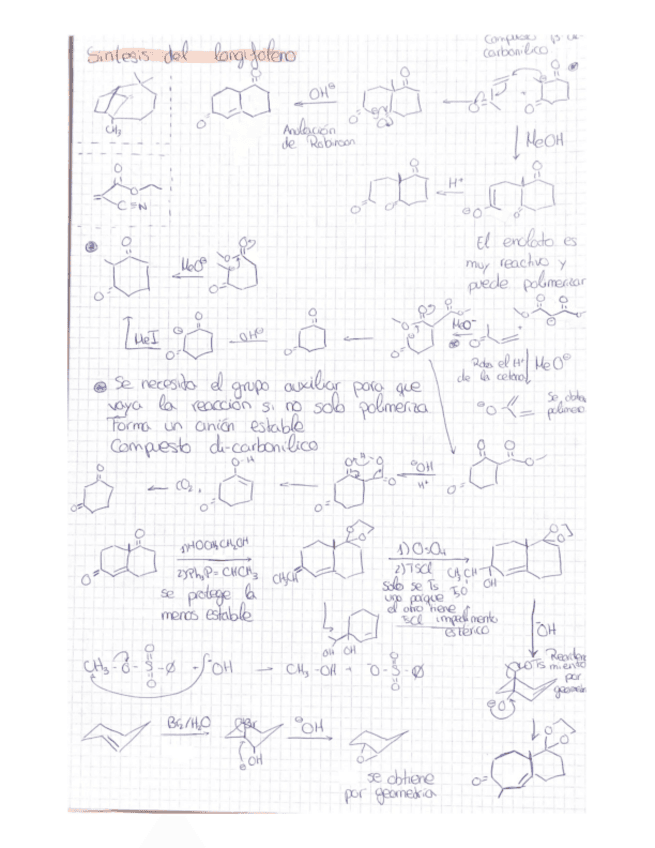 Síntesis del longifoleno
carbonílico
OH⊖
Anelación
de Robinson
MeOH
CH3
H⁺
El enolato es
muy reactivo y
puede polimerizar
C≡N
MeO⊖
MeI
OH⊖
MeO⁻
MeO⊖
de la cetona
Se necesita el grupo auxiliar para que
vaya la reacción si no solo polimeriza
Forma un anión estable
Compuesto di-carbonílico
⊖OH
H⁺
CO2
1) HOCH2CH2OH
2) Ph3P=CHCH3
se protege la
menos estable
CH3CH
1) OsO4
2) TSCl
solo se Ts
uno porque
el otro tiene
impedimento
estérico
CH3CH
OH
OH OH
⁻OH
CH3-O-S-Ø + ⁻OH → CH3-OH + ⁻O-S-Ø
OTs
por
geometría
Br2/H2O
⊖OH
OH
se obtiene
por geometría